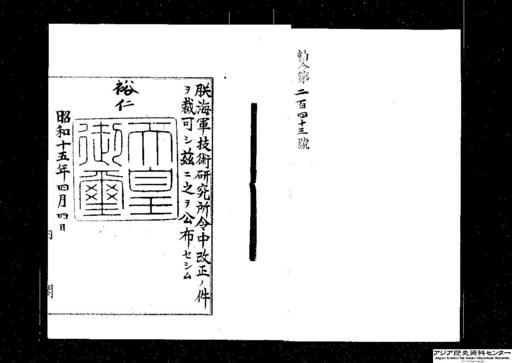 勅令第二百四十三號
朕海軍技術研究所令中改正ノ件
ヲ裁可シ茲ニ之ヲ公布セシム
裕仁
天皇御璽
昭和十五年四月四日
内閣
アジア歴史資料センター
Japan Center for Asian Historical Records